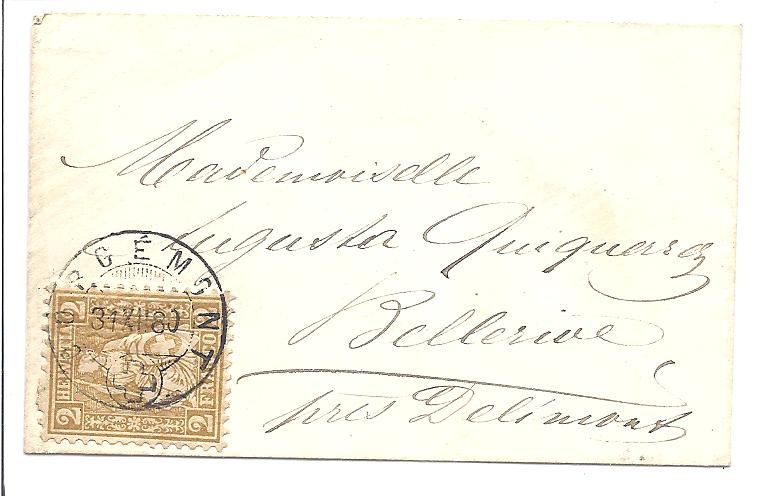 Mademoiselle
Augusta Quiquerez
Bellerive
près Delémont
CORGÉMONT
31 XII 80
HELVETIA
FRANCO
2 2
2 2